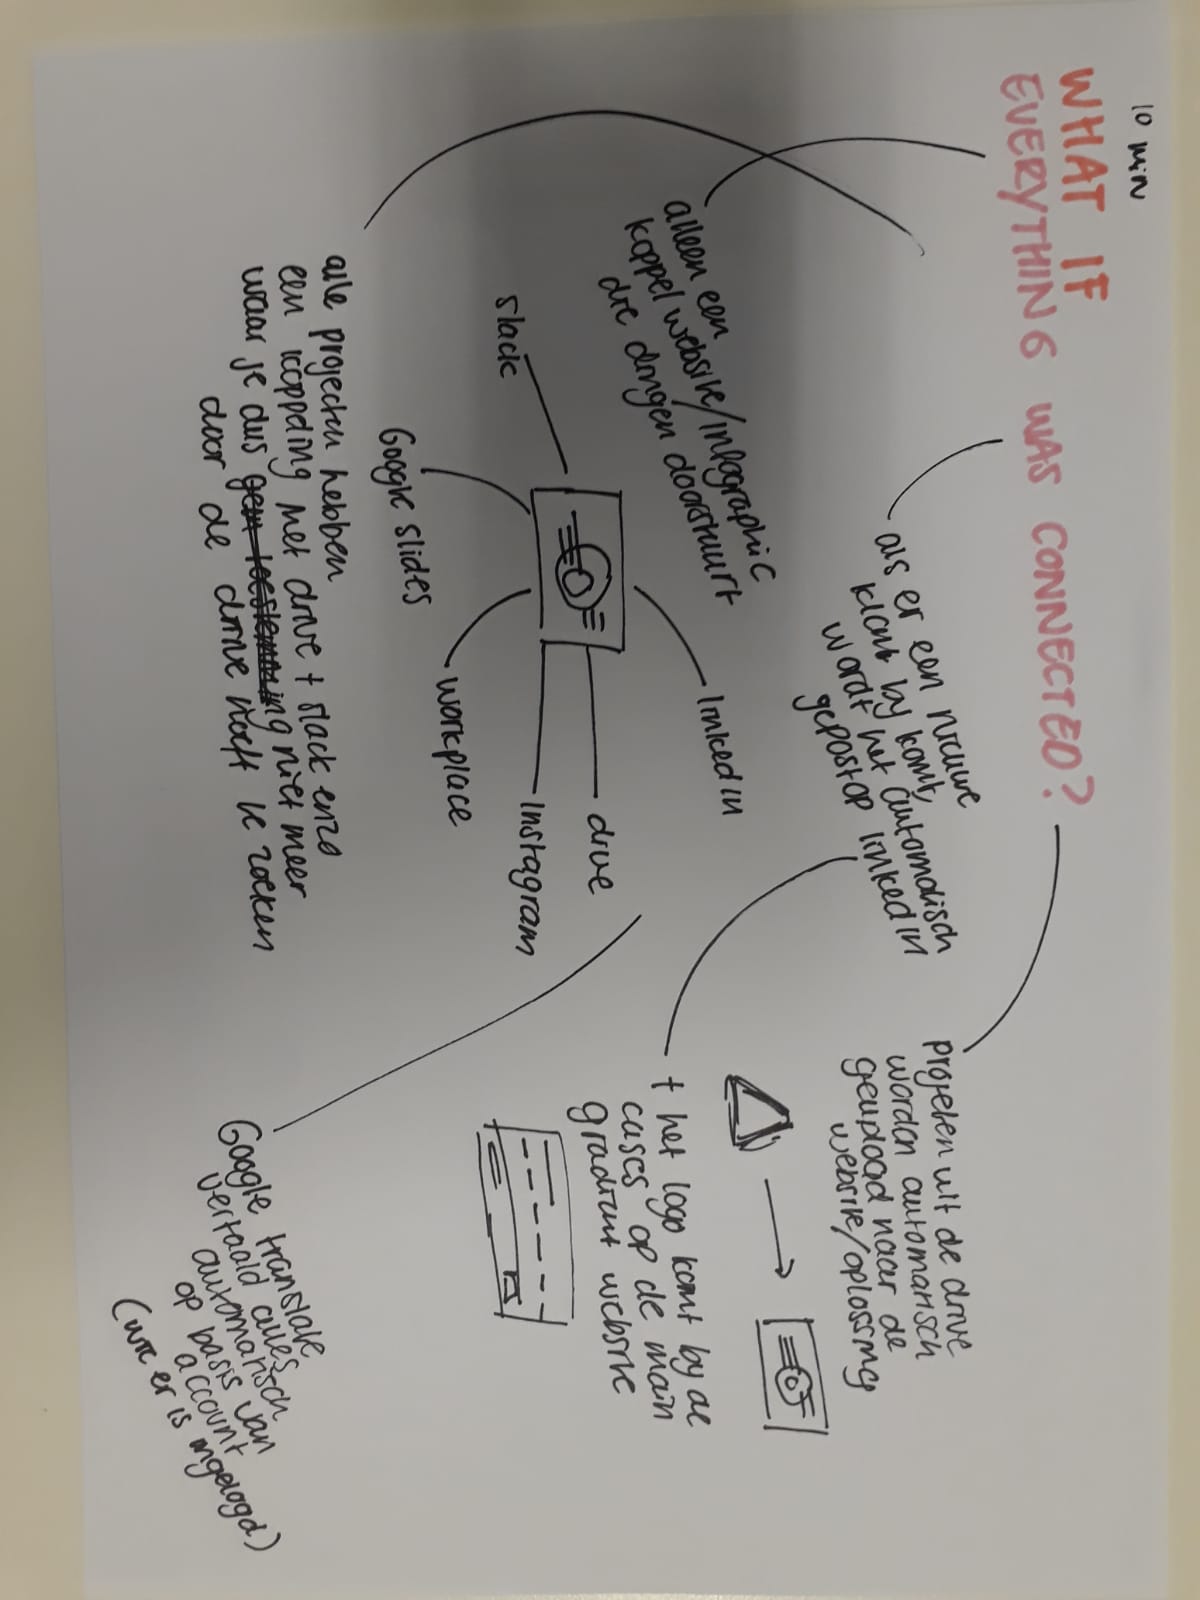 10 min
WHAT IF
EVERYTHING WAS CONNECTED?
alleen een
koppel website/infographic
die dingen doorstuurt
als er een nieuwe
klant bij komt,
wordt het automatisch
gepost op linkedin
projecten uit de drive
worden automatisch
geupload naar de
website/oplossing
+ het logo komt bij de
cases op de main
gradient website
slack
Google slides
workplace
Instagram
drive
linkedin
alle projecten hebben
een koppeling met drive + slack enzo
waar je dus niet meer
door de drive hoeft te zoeken
Google translate
vertaald alles
automatisch
op basis van
account
(wie er is ingelogd)